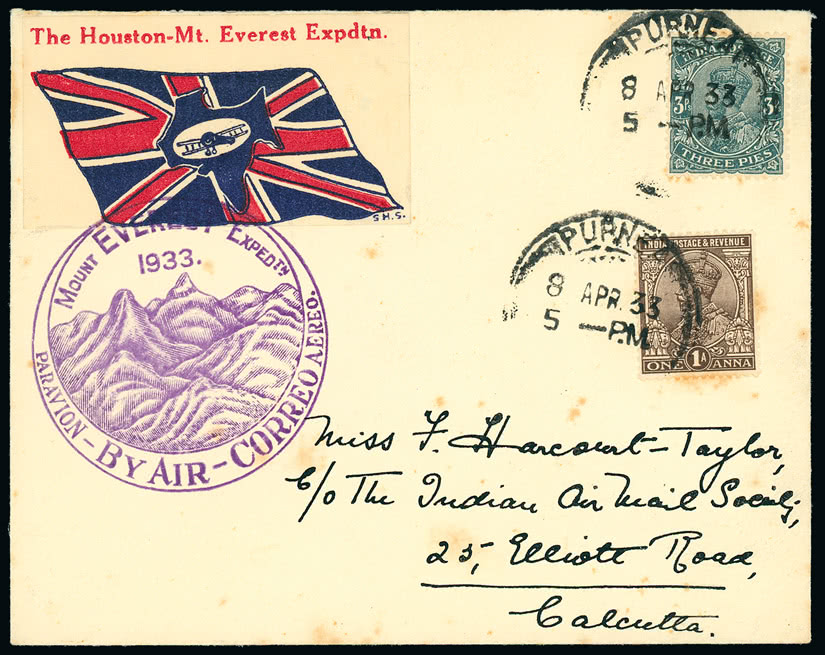 The Houston-Mt. Everest Expdtn.
S.H.S.
MOUNT EVEREST EXPEDTN
1933.
PARAVION - BY AIR - CORREO AEREO.
PURNE
8 APR 33
5 - P.M.
INDIA POSTAGE
3P
3P
THREE PIES
PURNE
8 APR. 33
5 - P.M.
INDIA POSTAGE & REVENUE
ONE 1A ANNA
Miss F. Harcourt-Taylor,
C/o The Indian Air Mail Society,
25, Elliott Road,
Calcutta.